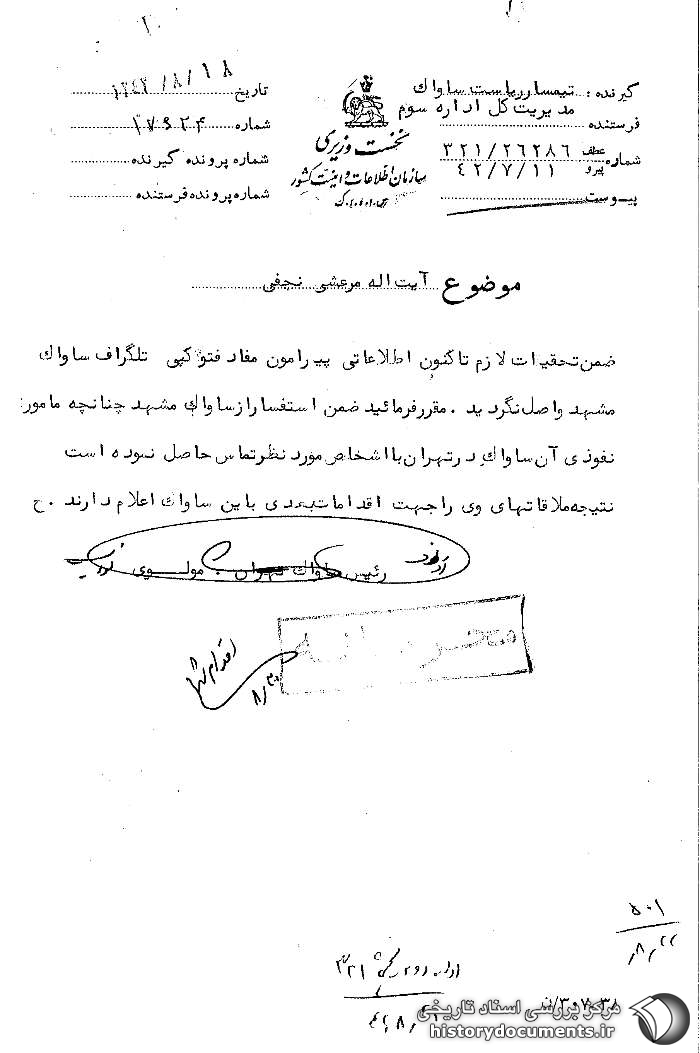 گیرنده : تیمسار ریاست ساواك
مدیریت کل اداره سوم
فرستنده
شماره عطف ۳۲۱/۲۶۲۸۶
پیرو ۴۲/۷/۱۱
پیوست
نخست وزیری
سازمان اطلاعات و امنیت کشور
س.ا.و.ا.ک
تاریخ ۱۳۴۲/۸/۱۸
شماره ۱۷۹۲۴
شماره پرونده گیرنده
شماره پرونده فرستنده
موضوع آیت اله مرعشی نجفی
ضمن تحقیرات لازم تاکنون اطلاعاتی پیرامون مفاد فتوکپی تلگراف ساواك
مشهد واصل نگردید . مقرر فرمائید ضمن استفسار از ساواك مشهد چنانچه مامور
نفوذی آن ساواك در تهران با اشخاص مورد نظر تماس حاصل نموده است
نتیجه ملاقاتهای وی را جهت اقدامات بعدی باین ساواك اعلام دارند . ح
رئیس ساواك تهران مولوی
محرمانه
اقدام شد
۸/۳۰
۵۰۱
۸/۲۲
۳۲۱
۳۰۷۰۳۸/ن
مرکز بررسی اسناد تاریخی
historydocuments.ir